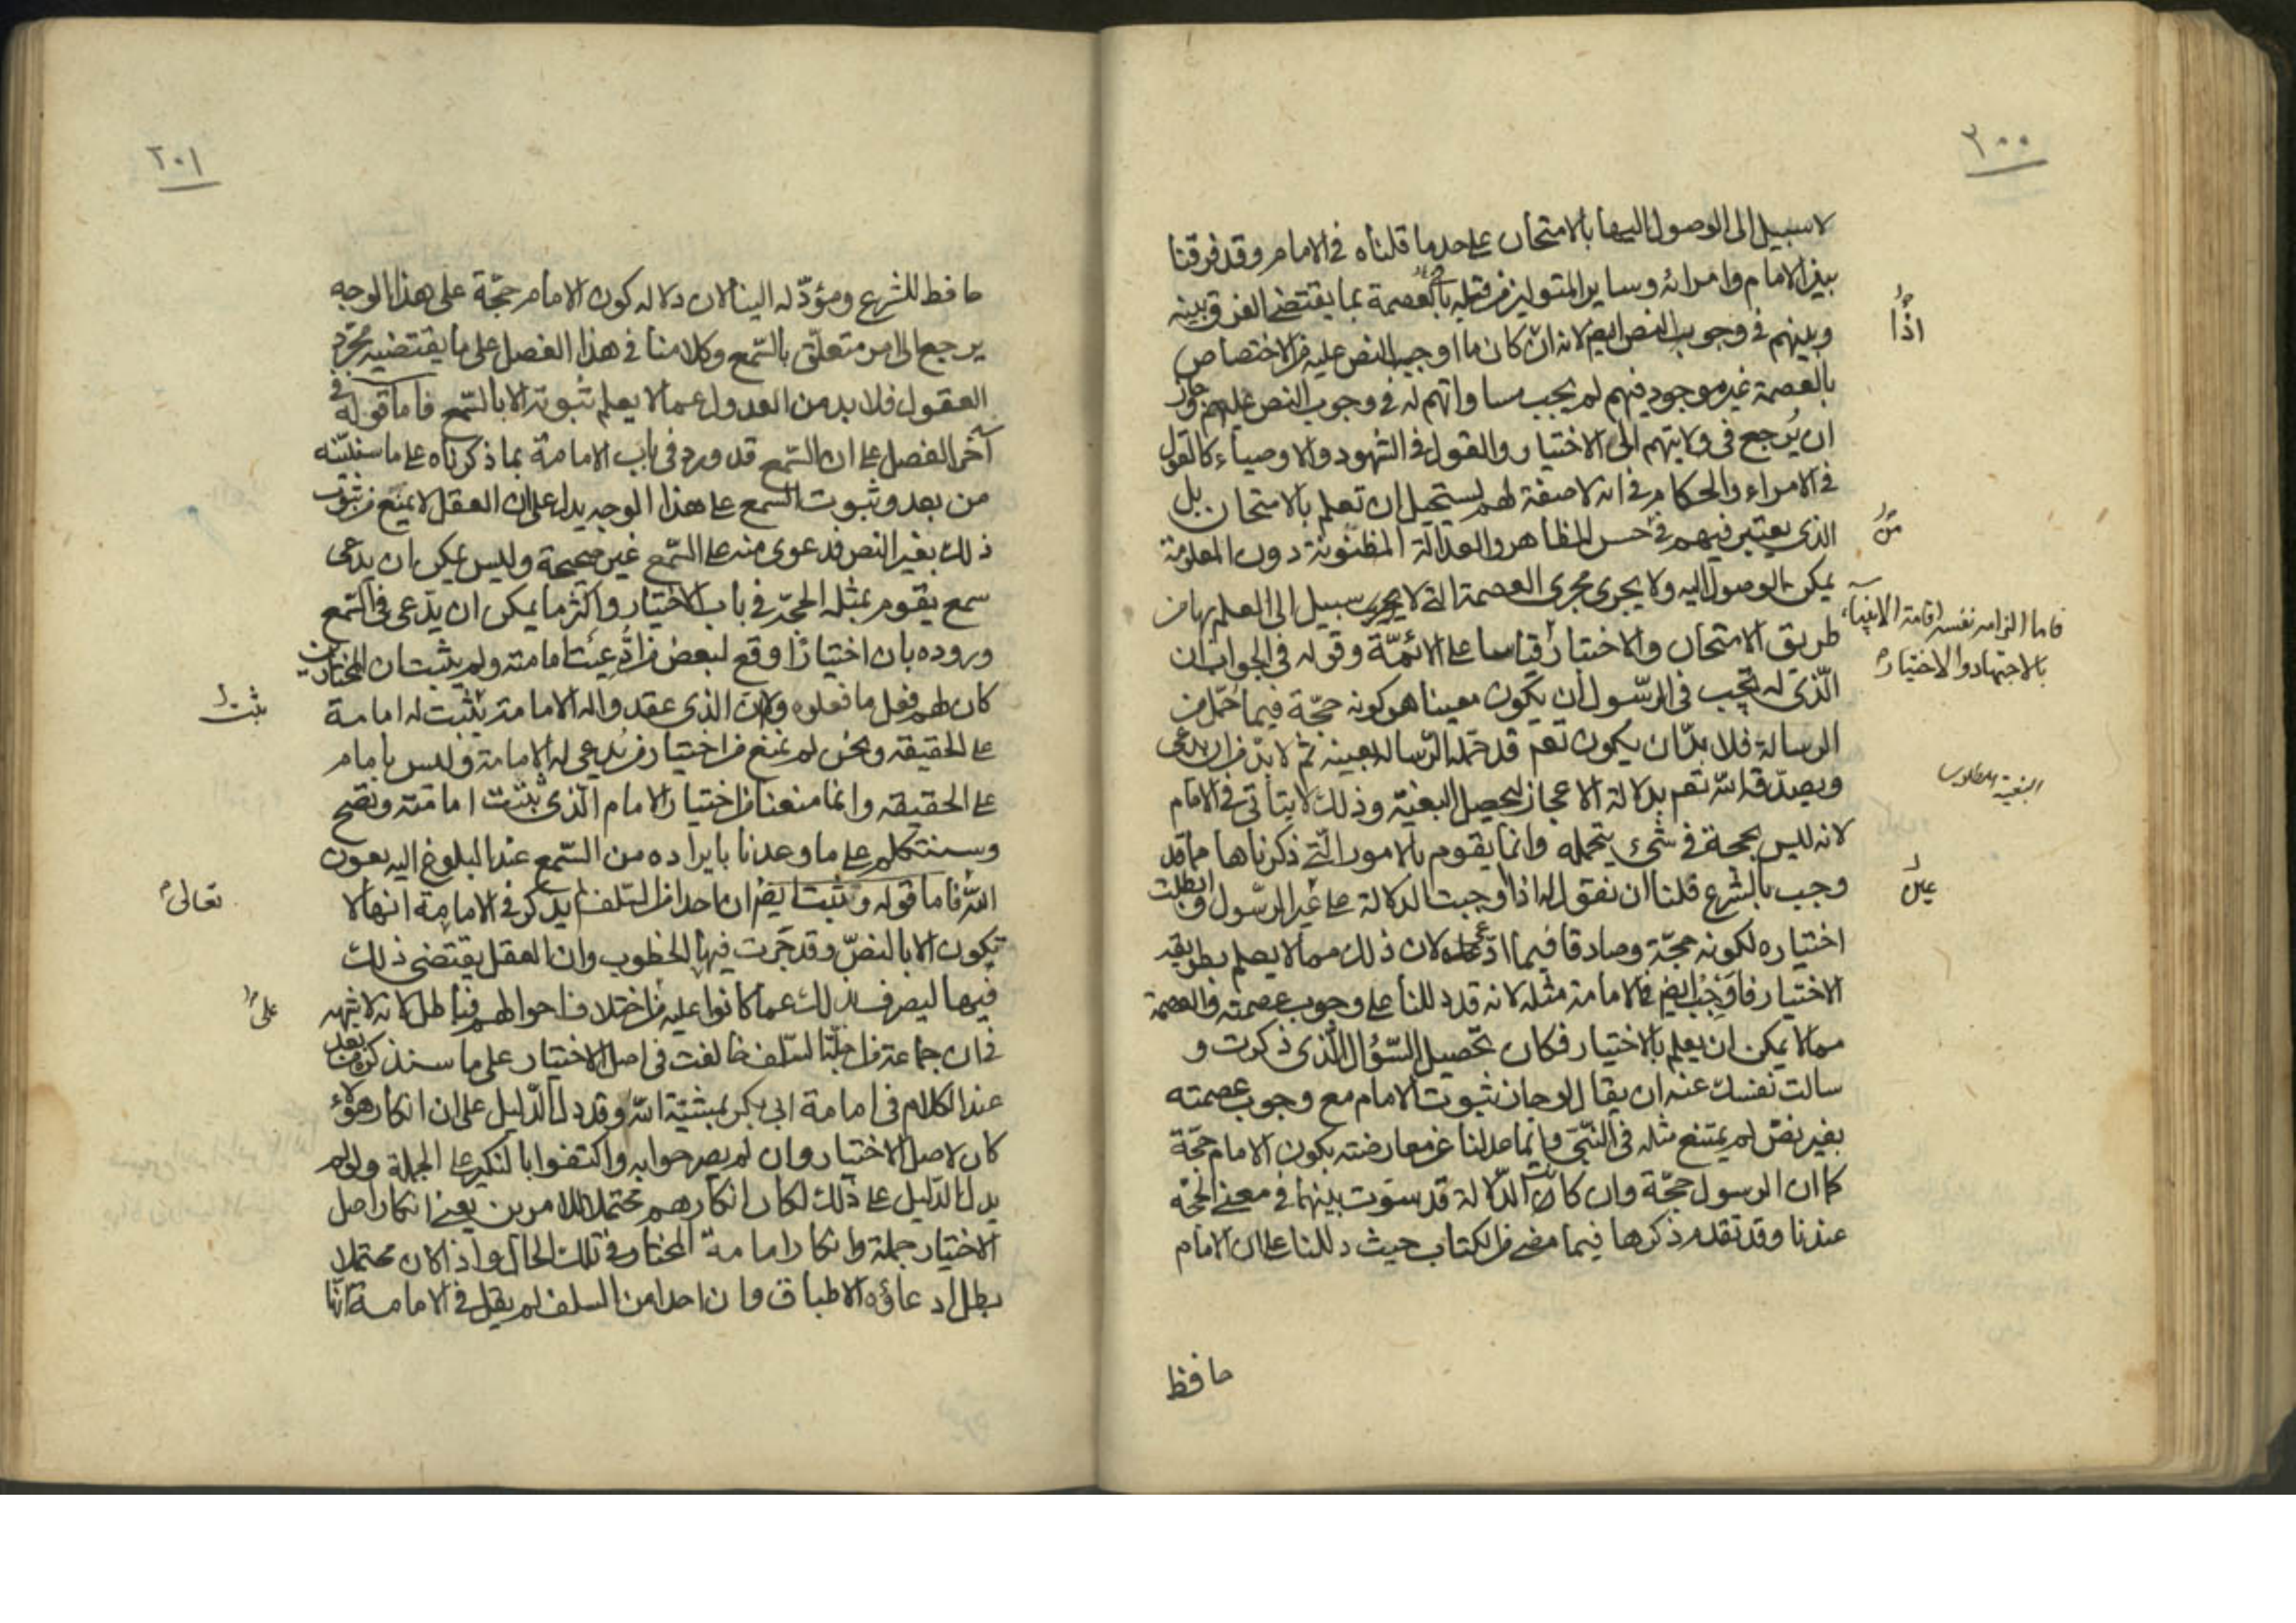 ٢٠٠
لا سبيل الى الوصول اليها بالامتحان على حد ما قلناه في الامام وقد فرقنا
بين الامام وامرائه وساير المتولين من قبله بالعصمة بما يقتضى الفرق بينه
وبينهم في وجوب النص ايضا لانه اذا كان ما اوجب النص عليه من الاختصاص
بالعصمة غير موجود فيهم لم يجب مساواتهم له في وجوب النص عليهم وجاز
ان يُرجع في ولايتهم الى الاختيار والقول في الشهود والاوصياء كالقول
في الامراء والحكام في انه لا صفة لهم يستحيل ان تعلم بالامتحان بل
الذي يعتبر فيهم من حسن الظاهر والعدالة المظنونة دون المعلومة
يمكن الوصول اليه ولا يجرى مجرى العصمة التي لا سبيل الى العلم بها من
طريق الامتحان والاختيار قياسا على الائمّة وقوله في الجواب ان
الّذى له يجب في الرّسول ان يكون معينا هو كونه حجّة فيما حمّل من
الرسالة فلا بدّ ان يكون تعم قد حمّله الرّسالة بعينه ثم لا بدّ من ان يدعى
ويصدّقه الله تعم بدلالة الاعجاز ليحصل البغية وذلك لا يتأتى في الامام
لانه ليس بحجة في شىء يتحمله وانما يقوم بالامور الّتي ذكرناها مما قد
وجب بالشرع قلنا ان نقول له اذا وجبت الدلالة على عين الرّسول وابطلت
اختياره لكونه حجّة وصادقا فيما ادّعى لان ذلك مما لا يعلم بطريقه
الاختيار فاوجب ايضا في الامامة مثله لانه قد دللنا على وجوب عصمته والعصمة
مما لا يمكن ان يعلم بالاختيار فكان تحصيل السّؤال الّذى ذكرت و
سالت نفسك عنه ان يقال لو جاز ثبوت الامام مع وجوب عصمته
بغير نصّ لم يمتنع مثله في النّبىّ وانما عدلنا عن معارضته بكون الامام حجّة
كما ان الرسول حجّة وان كانت الدّلالة قد سوّت بينهما في معنى الحجّة
عندنا وقد تقدم ذكرها فيما مضى من الكتاب حيث دللنا على ان الامام
حافظ
اذا
من
فاما الزامه نفسه اقامة الانبياء
بالاجتهاد والاختيار
البغية المطلوب
عين
٢٠١
حافظ للشرع ومؤدّ له الينا لان دلالة كون الامام حجّة على هذا الوجه
يرجع الى امر متعلّق بالسّمع وكلامنا في هذا الفصل على ما يقتضيه مجرّد
العقول فلا بد من العدول عما لا يعلم ثبوته الا بالسّمع فاما قوله في
آخر الفصل على ان السّمع قد ورد في باب الامامة بما ذكرناه على ما سنبيّنه
من بعد وثبوت السمع على هذا الوجه يدل على ان العقل لا يمنع من ثبوت
ذلك بغير النص فدعوى منه على السّمع غير صحيحة وليس يمكن ان يدعى
سمع يقوم بمثله الحجّة في باب الاختيار واكثر ما يمكن ان يدّعى في السّمع
وروده بان اختيارًا وقع لبعض من ادُّعيت امامته ولم يثبت ان المختارين
كان لهم فعل ما فعلوه ولا ان الذي عقدوا له الامامة يثبت له امامة
على الحقيقة ونحن لم نمنع من اختيار من يُدعى له الامامة وليس بامام
على الحقيقة وانما منعنا من اختيار الامام الّذى يثبت امامته وتصح
وسنتكلم على ما وعدنا بايراده من السّمع عند البلوغ اليه بعون
الله فاما قوله وثبت ايضا ان احدا من السّلف لم يذكر في الامامة انها لا
تكون الا بالنصّ وقد جَرت فيها الخطوب وان العقل يقتضى ذلك
فيها ليصرف بذلك عما كانوا عليه من اختلاف احوالهم فباطل لانه لا شبهة
في ان جماعة من جلّة السّلف خالفت في اصل الاختيار على ما سنذكره من بعد
عند الكلام في امامة ابي بكر بمشيّة الله وقد دل الدّليل على ان انكار هؤلاء
كان لاصل الاختيار وان لم يصرحوا به واكتفوا بالنكير على الجملة ولو لم
يدل الدّليل على ذلك لكان انكارهم محتملا للامرين يعنى انكار اصل
الاختيار جملة وانكار امامة المختار في تلك الحال واذا كان محتملا
بطل ادعاؤه الاطباق وان احدا من السلف لم يقل في الامامة انّها
ثبت
تعالى
على